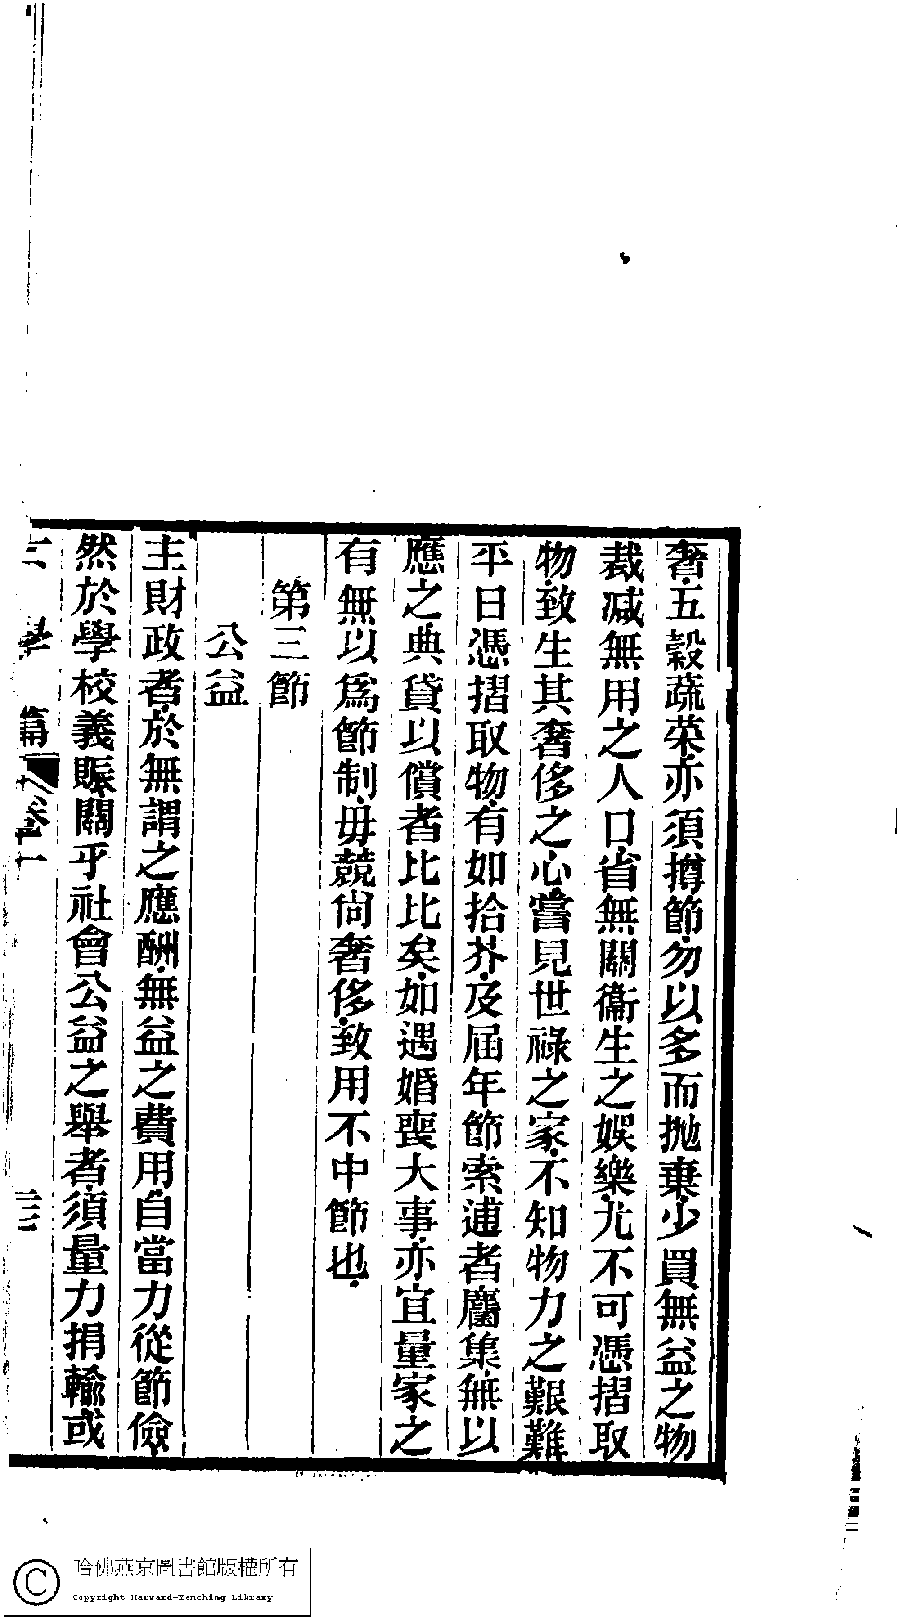 奢五穀蔬菜亦須撙節勿以多而拋棄少買無益之物
裁減無用之人口省無關衞生之娛樂尤不可憑摺取
物致生其奢侈之心嘗見世祿之家不知物力之艱難
平日憑摺取物有如拾芥及屆年節索逋者麕集無以
應之典貸以償者比比矣如遇婚喪大事亦宜量家之
有無以爲節制毋競尙奢侈致用不中節也
第三節
公益
主財政者於無謂之應酬無益之費用自當力從節儉
然於學校義賑關乎社會公益之舉者須量力捐輸或
學篇 卷一 三
哈佛燕京圖書館版權所有
Copyright Harvard-Yenching Library